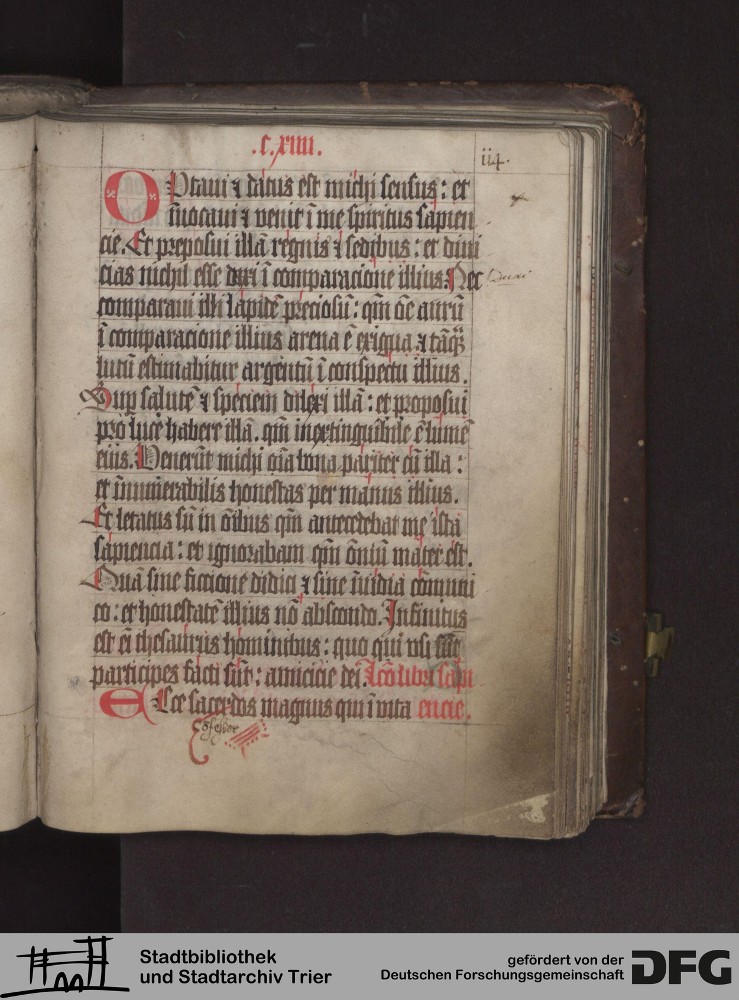 .c.xiiii.
114.
OPtaui ⁊ datus est michi sensus: et
īuocaui ⁊ venit ī me spiritus sapien
cie. Et preposui illā regnis ⁊ sedibus: et diui
cias nichil esse duxi ī comparacione illius. Nec
comparaui illi lapidē preciosū: qm̄ oē aurū
ī comparacione illius arena ē exigua ⁊ tāq̄ȝ
lutū estimabitur argentū ī conspectu illius.
Sup salutē ⁊ speciem dilexi illā: et proposui
pro luce habere illā. qm̄ inextinguibile ē lumē
eius. Venerūt michi oīa bona pariter cū illa:
et īnumerabilis honestas per manus illius.
Et letatus sū in oībus qm̄ antecedebat me ista
sapiencia: et ignorabam qm̄ ōniū mater est.
Quā sine ficcione didici ⁊ sine īuidia cōmuni
co: et honestatē illius nō abscondo. Infinitus
est eī thesaurus hominibus: quo qui vsi sūt
participes facti sūt: amicicie dei. Lcō libri sapi
ECce sacerdos magnus qui ī vita encie.
Stadtbibliothek
und Stadtarchiv Trier
gefördert von der
Deutschen Forschungsgemeinschaft
DFG